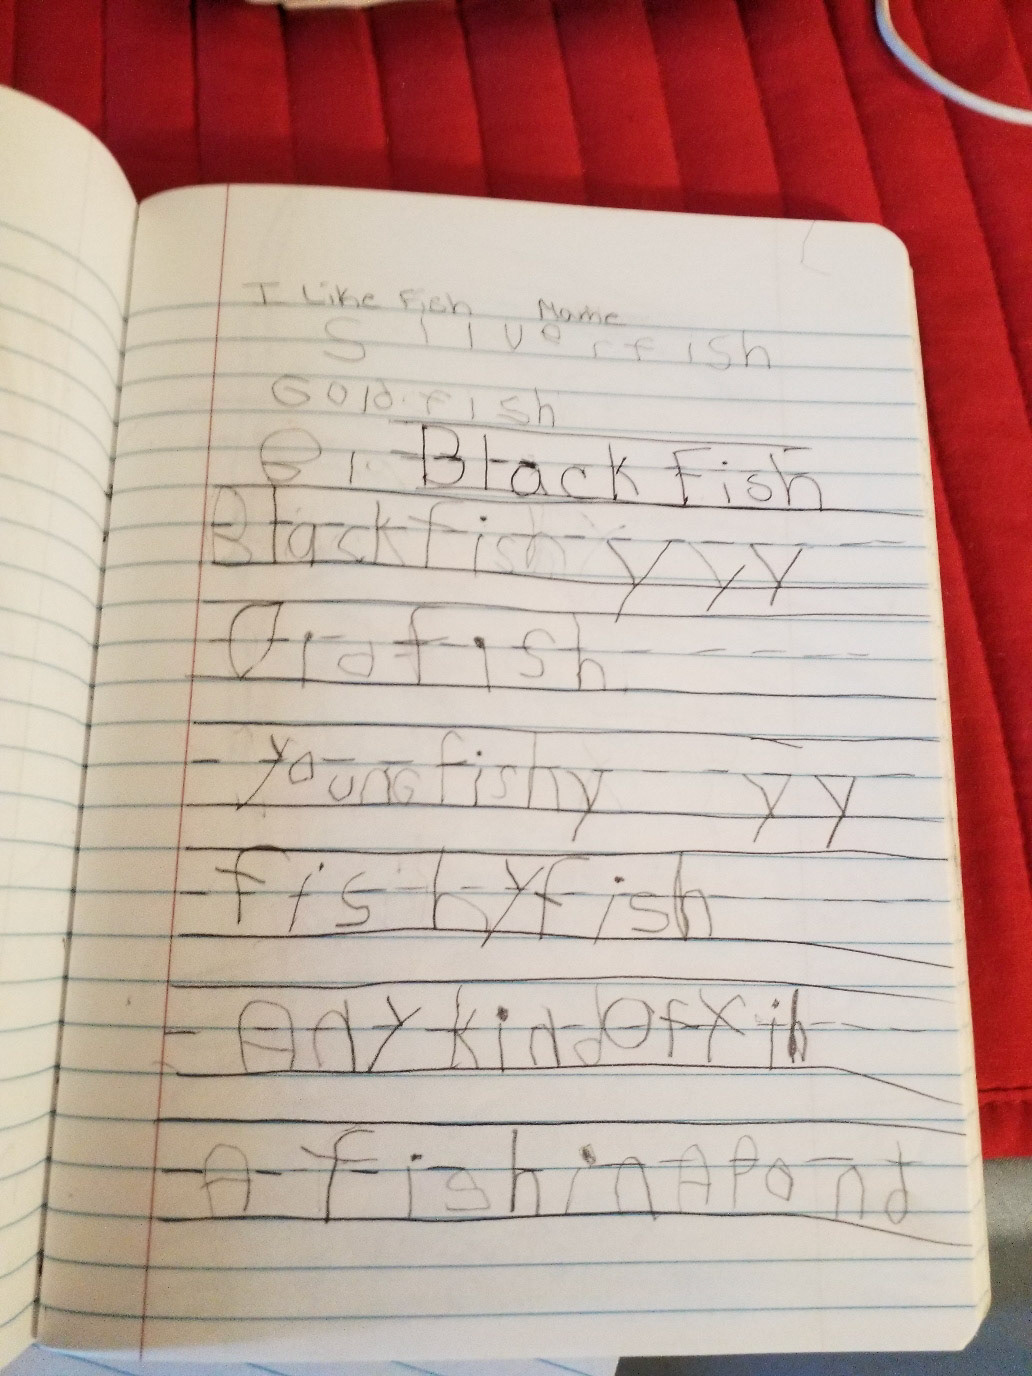 I Like Fish Name
Silverfish
Gold fish
Black Fish
Blackfish y y y
Old fish
Young fishy y y
fishy fish
Any kind Of
A fish in A Pond